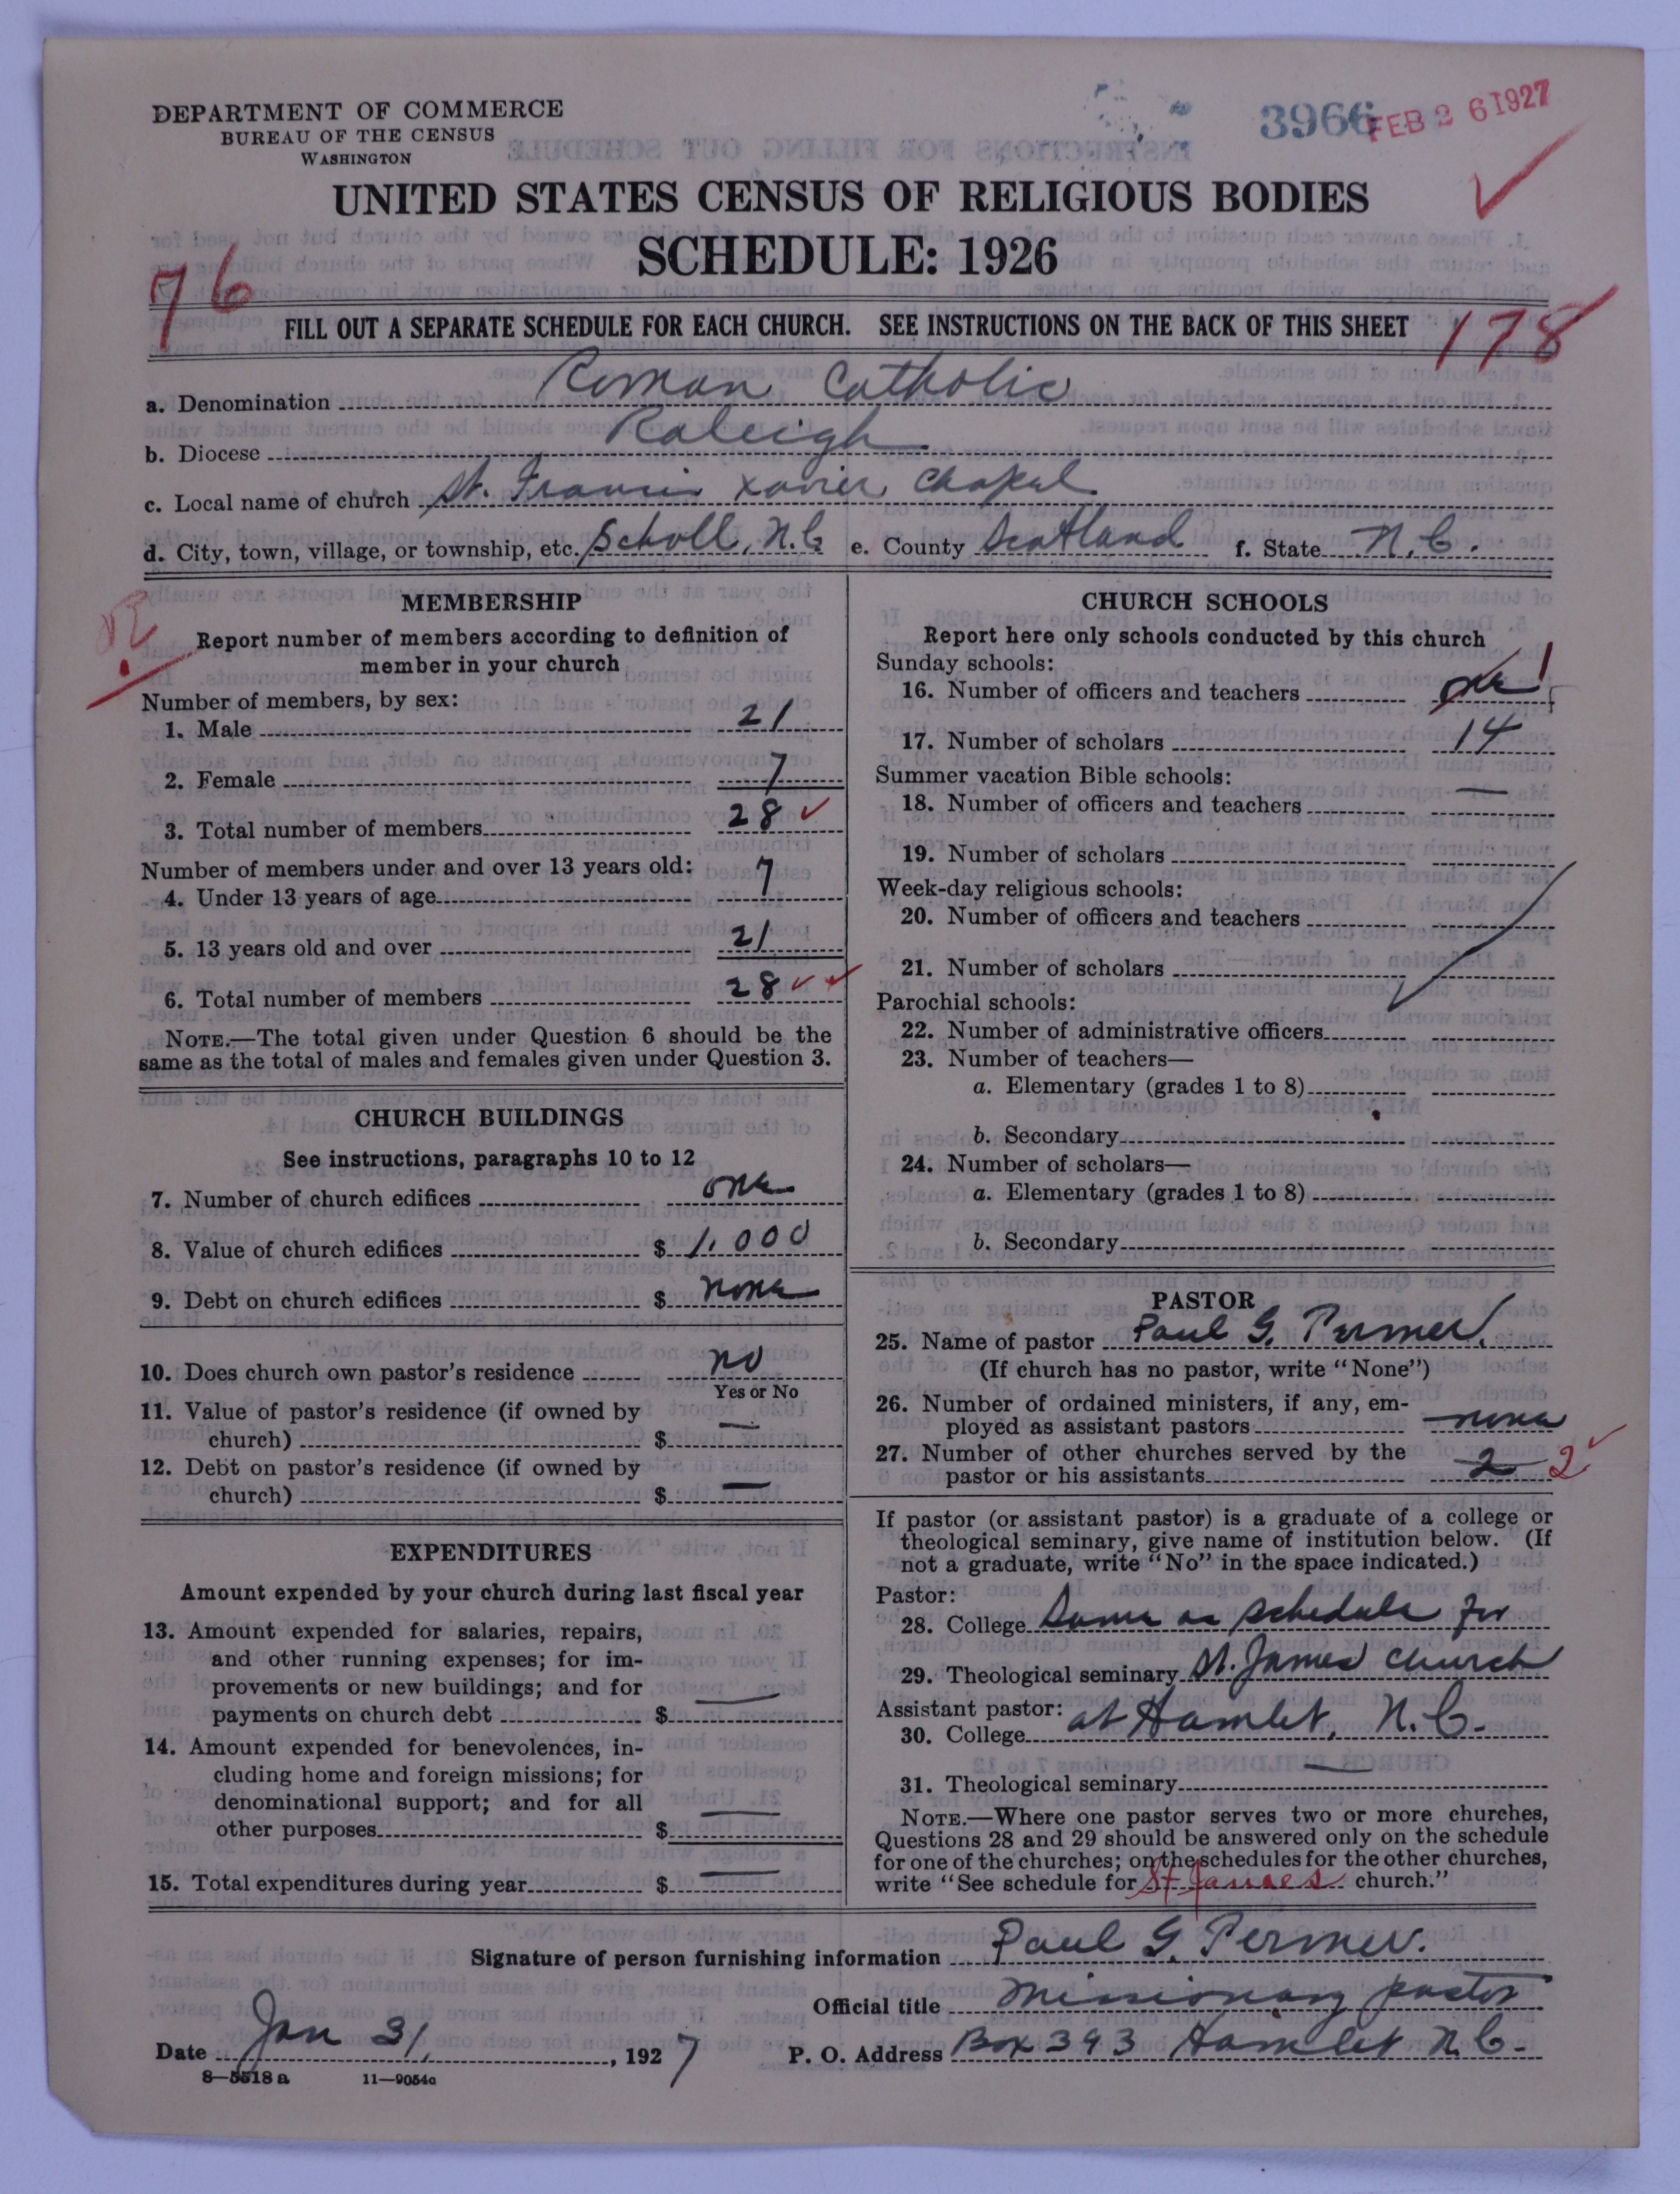 DEPARTMENT OF COMMERCE
BUREAU OF THE CENSUS
WASHINGTON
3966
FEB 26 1927
UNITED STATES CENSUS OF RELIGIOUS BODIES
SCHEDULE: 1926
76
FILL OUT A SEPARATE SCHEDULE FOR EACH CHURCH. SEE INSTRUCTIONS ON THE BACK OF THIS SHEET
178
a. Denomination Roman Catholic
b. Diocese Raleigh
c. Local name of church St. Francis Xavier Chapel
d. City, town, village, or township, etc. Scholl, N.C. e. County Scotland f. State N.C.
MEMBERSHIP
Report number of members according to definition of
member in your church
Number of members, by sex:
1. Male 21
2. Female 7
3. Total number of members 28
Number of members under and over 13 years old:
4. Under 13 years of age 7
5. 13 years old and over 21
6. Total number of members 28
NOTE.—The total given under Question 6 should be the
same as the total of males and females given under Question 3.
CHURCH BUILDINGS
See instructions, paragraphs 10 to 12
7. Number of church edifices one
8. Value of church edifices $ 1,000
9. Debt on church edifices $ none
10. Does church own pastor's residence no
Yes or No
11. Value of pastor's residence (if owned by
church) $ —
12. Debt on pastor's residence (if owned by
church) $ —
EXPENDITURES
Amount expended by your church during last fiscal year
13. Amount expended for salaries, repairs,
and other running expenses; for im-
provements or new buildings; and for
payments on church debt $ —
14. Amount expended for benevolences, in-
cluding home and foreign missions; for
denominational support; and for all
other purposes $ —
15. Total expenditures during year $ —
CHURCH SCHOOLS
Report here only schools conducted by this church
Sunday schools:
16. Number of officers and teachers one 1
17. Number of scholars 14
Summer vacation Bible schools:
18. Number of officers and teachers —
19. Number of scholars
Week-day religious schools:
20. Number of officers and teachers
21. Number of scholars
Parochial schools:
22. Number of administrative officers
23. Number of teachers—
a. Elementary (grades 1 to 8)
b. Secondary
24. Number of scholars—
a. Elementary (grades 1 to 8)
b. Secondary
PASTOR
25. Name of pastor Paul G. Termer.
(If church has no pastor, write "None")
26. Number of ordained ministers, if any, em-
ployed as assistant pastors none
27. Number of other churches served by the
pastor or his assistants 2 2
If pastor (or assistant pastor) is a graduate of a college or
theological seminary, give name of institution below. (If
not a graduate, write "No" in the space indicated.)
Pastor:
28. College Same as schedule for
29. Theological seminary St. James Church
Assistant pastor:
30. College at Hamlet, N.C.
31. Theological seminary —
NOTE.—Where one pastor serves two or more churches,
Questions 28 and 29 should be answered only on the schedule
for one of the churches; on the schedules for the other churches,
write "See schedule for St James church."
Signature of person furnishing information Paul G. Termer.
Official title Missionary pastor
Date Jan 31, 1927 P. O. Address Box 393 Hamlet N.C.
8—5518a 11—9054a